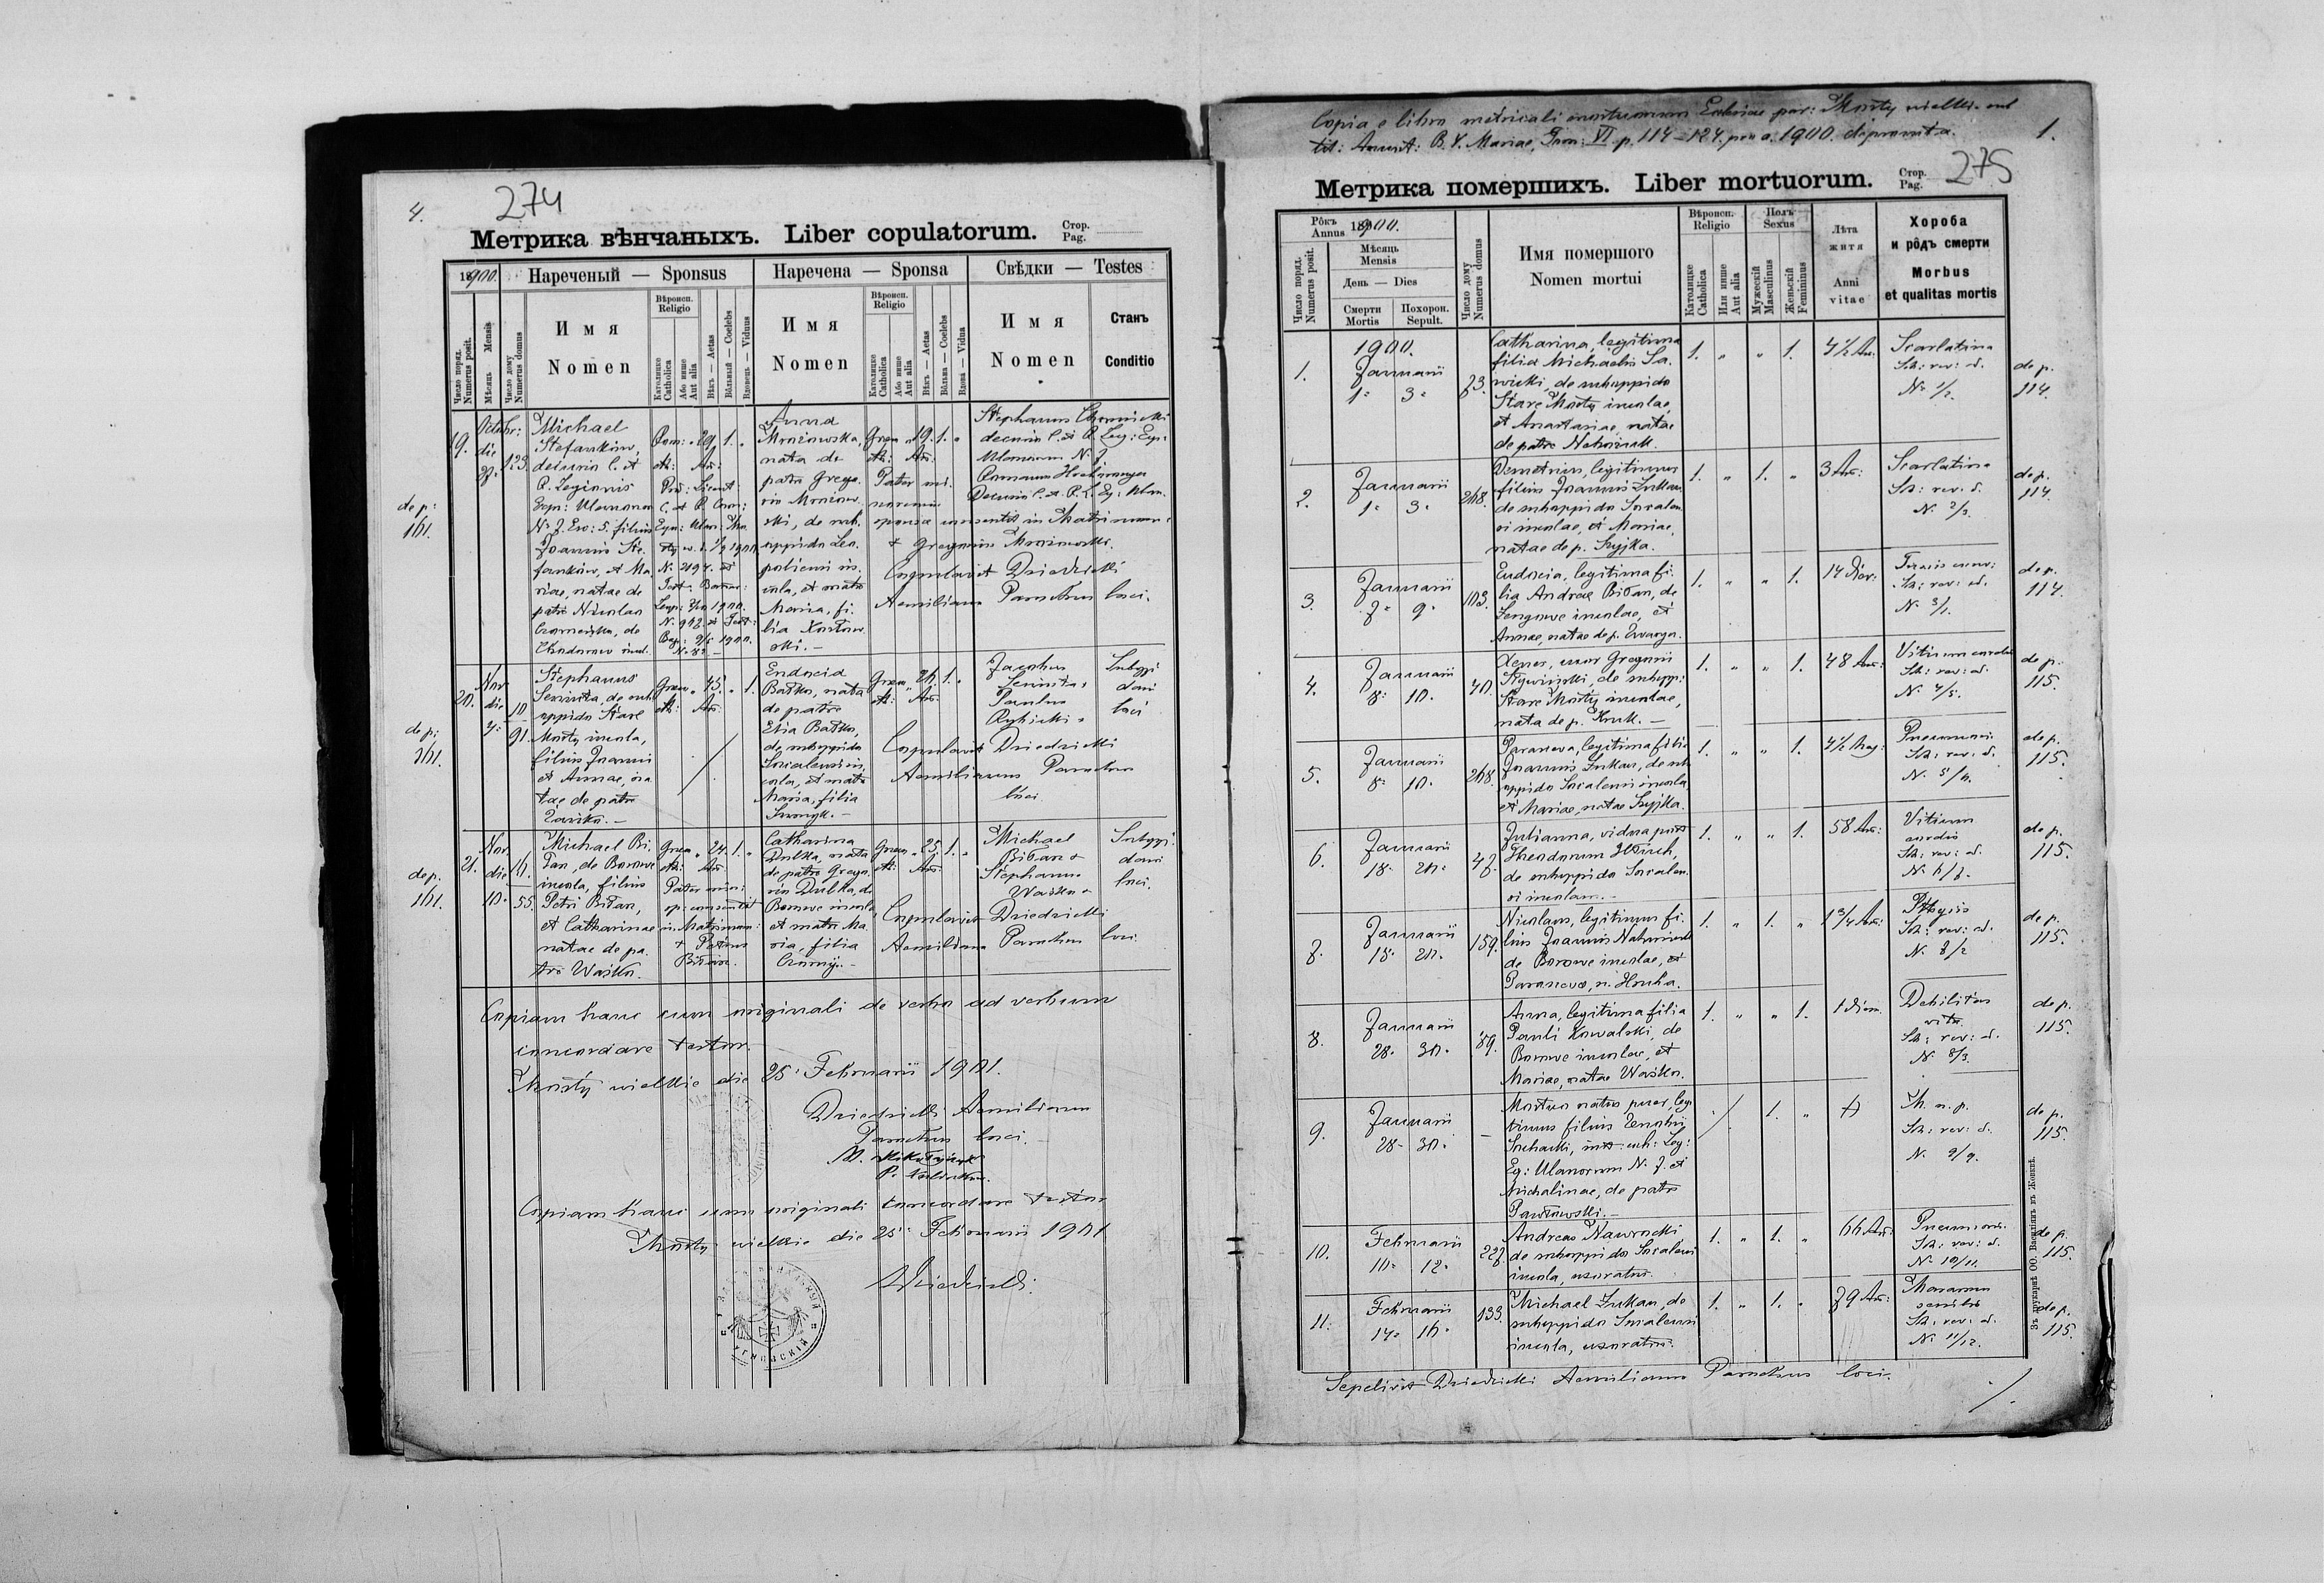 4.
274
Метрика вѣнчаныхъ. Liber copulatorum.
Стор.
Pag.
1900.
Нареченый — Sponsus
Наречена — Sponsa
Свѣдки — Testes
Число поряд.
Numerus posit.
Мѣсяць Mensis
Число дому
Numerus domus
Имя
Nomen
Вѣроисп.
Religio
Католицке
Catholica
Або инше
Aut alia
Вѣкъ — Aetas
Вôльный — Coelebs
Вдовець — Viduus
Имя
Nomen
Вѣроисп.
Religio
Католицке
Catholica
Або инше
Aut alia
Вѣкъ — Aetas
Вôльна — Coelebs
Вдова — Vidua
Имя
Nomen
Станъ
Conditio
19.
Octobr:
die
123.
de p:
161.
Michael
Stefanków,
decurio C. et
R. Legionis
Equ: Ulanorum
N: 7. Esc: 5. filius
Joannis Ste-
fanków, et Ma-
riae, natae de
patre Nicolao
29 1.
Anna
nata de
patre Grego-
rio
ski, de sub-
oppido Leo-
poliensi in-
cola, et matre
Maria, fi-
lia
ski. —
Graeca 19. 1.
Pater mi-
norennis
sponsae consentit in Matrimon:
+ Gregorius
Stephanus
decurio C. et R. Leg: Equ:
Ulanorum N. 7.
Decurio C. et R. L. Eq: Ulan.
Copulavit Dziedzicki
Aemilianus Parochus loci.
20.
Nov.
die
4.
10
91.
de p:
161.
Stephanus
de sub-
oppido Stare
Mosty incola,
filius Joannis
et Annae, na-
tae de patre
45. 1.
Eudocia
Baśko, nata
de patre
Elia Baśko,
de suboppido
Socalensi in-
cola, et matre
Maria, filia
26. 1.
Jacobus
Paulus
Rybicki
Suboppi-
dani
loci
Copulavit Dziedzicki
Aemilianus Parochus
loci
21.
Nov.
die
10.
161.
55.
de p.
161.
Michael Bi-
łan, de Borowe
incola, filius
Petri Biłan,
et Catharinae
natae de pa-
tre Waśko.
24. 1.
Pater min:
sp: consentit
in Matrimon:
+ Petrus
Biłan.
Catharina
Dulka, nata
de patre Grego-
rio Dulka, de
Borowe incola,
et matre Ma-
ria, filia
Czornyj. —
25. 1.
Michael
Biłan +
Stephanus
Waśko +
Suboppi-
dani
loci.
Copulavit Dziedzicki
Aemilianus Parochus loci
Copiam hanc cum originali de verbo ad verbum
concordare testor.
Mosty wielkie die 25. Februarii 1901.
Dziedzicki Aemilianus
Parochus loci.
Copiam hanc cum originali concordare testor
Mosty wielkie die 25. Februarii 1901
Dziedzicki
Copia e libro metricali mortuorum Ecclesiae par: Mosty wielkie sub
tit: Annunt: B. V. Mariae, Tom: VI p. 114-124. pro a. 1900. depromta.
1.
275
Метрика помершихъ. Liber mortuorum.
Стор.
Pag.
Рôкъ
Annus 1900.
Число поряд.
Numerus posit.
Мѣсяць
Mensis
День — Dies
Смерти
Mortis
Похорон.
Sepult.
Число дому
Numerus domus
Имя помершого
Nomen mortui
Вѣроисп.
Religio
Католицке
Catholica
Или инше
Aut alia
Полъ
Sexus
Мужескій
Masculinus
Женьскій
Femininus
Лѣта
житя
Anni
vitae
Хороба
и рôдъ смерти
Morbus
et qualitas mortis
1.
1900.
Januarii
1. 3.
73.
Catharina, legitima
filia Michaelis Sa-
wicki, de suboppido
Stare Mosty incolae,
et Anastasiae, natae
de patre Nahniuk.
1. " " 1.
4½ An:
Scarlatina
Sch: rev: d.
N. 1/2.
de p.
114.
2.
Januarii
1. 3.
268.
Demetrius, legitimus
filius Joannis Lukan,
de suboppido Socalen-
si incolae, et Mariae,
natae de p. Szyjka.
1. " 1. "
3 An:
Scarlatina
Sch: rev. d.
N. 2/3.
de p.
114.
3.
Januarii
7. 9.
103.
Eudocia, legitima fi-
lia Andreae Biłan, de
incolae, et
Annae, natae de p.
1. " " 1.
14 dier:
Sch: rev: d.
N. 3/1.
de p.
114.
4.
Januarii
8. 10.
40.
Xenes, uxor Gregorii
de subopp:
Stare Mosty incolae,
nata de p. Kruk. —
1. " " 1.
48 An:
Vitium cordis
Sch: rev: d.
N. 4/5.
de p.
115.
5.
Januarii
8. 10.
268.
Parasceva, legitima filia
Joannis Lukan, de sub-
oppido Socalensi incolae
et Mariae, natae Szyjka.
1. " " 1.
Pneumonia
Sch: rev. d.
N. 5/6.
de p.
115.
6.
Januarii
18. 20.
47.
Julianna, vidua post
Theodorum
de suboppido Socalen-
si incolam. —
1. " " 1.
58 An:
Vitium
cordis
Sch: rev: d.
N. 6/7.
de p.
115.
7.
Januarii
18. 20.
159.
Nicolaus, legitimus fi-
lius Joannis Nahniuk
de Borowe incolae, et
Parasceva, n. Hruba.
1. " 1. "
1¾ An:
Sch: rev: d.
N. 7/2
de p.
115.
8.
Januarii
28. 30.
89.
Anna, legitima filia
Pauli Kowalski, de
Borowe incolae, et
Mariae, natae Waśko.
1. " " 1.
1 diem.
Debilitas
vitae
Sch: rev: d.
N. 8/3.
de p.
115.
9.
Januarii
28. 30.
—
Mortuo natus puer, legi-
timus filius Zenobii
Leg:
Eq: Ulanorum N. 7. et
Michalinae, de patre
Pawłowski. —
1. "
M. n. p.
Sch: rev: d.
N. 9/9.
de p.
115.
10.
Februarii
10. 12.
227.
Andreas Nawrocki
de suboppido Socalensi
incola, uxoratus.
1. " 1. "
66 An:
Pneumonia
Sch: rev: d.
N. 10/11.
de p.
115.
11.
Februarii
14. 16.
133.
Michael Lukan, de
suboppido Socalensi
incola, uxoratus.
1. " 1. "
79 An:
Marasmus
senilis
Sch: rev: d.
N. 11/12.
de p.
115.
Sepelivit Dziedzicki Aemilianus Parochus loci.
Зъ друкарнѣ ОО. Василіянъ въ Жовквѣ.